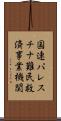 国連パレスチナ難民救
済事業機関